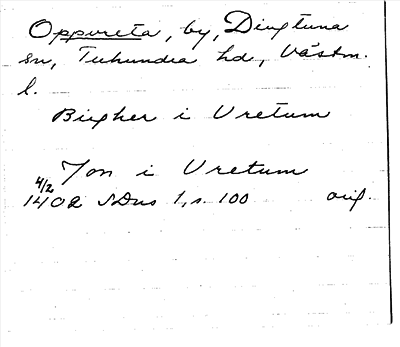 Oppureta, by, Dingtuna
sn, Tuhundra hd, Västm.
l.
Birgher i Uretum
Jon i Uretum
4/2
1402 SDns 1, s. 100 orig.